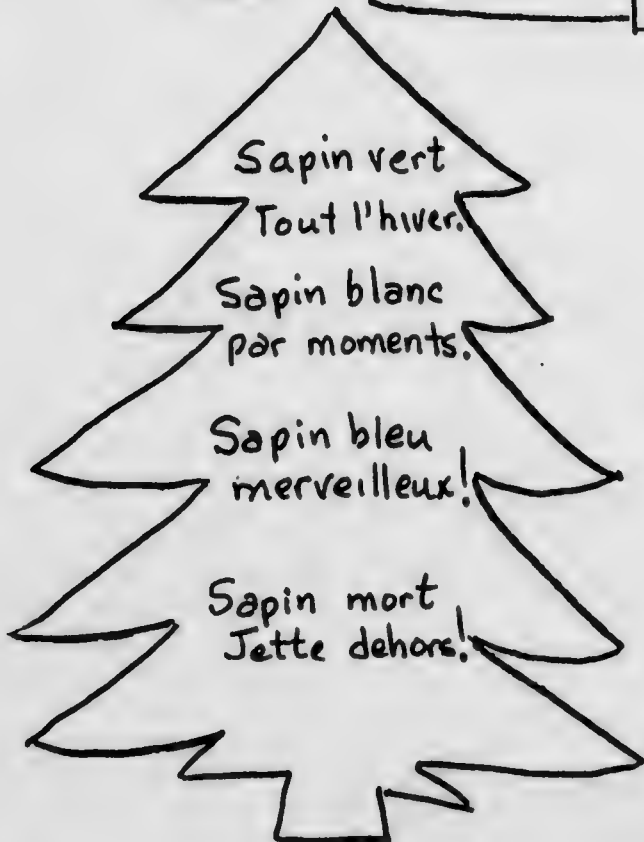 Sapin vert
Tout l'hiver.
Sapin blanc
par moments.
Sapin bleu
merveilleux!
Sapin mort
Jette dehors!